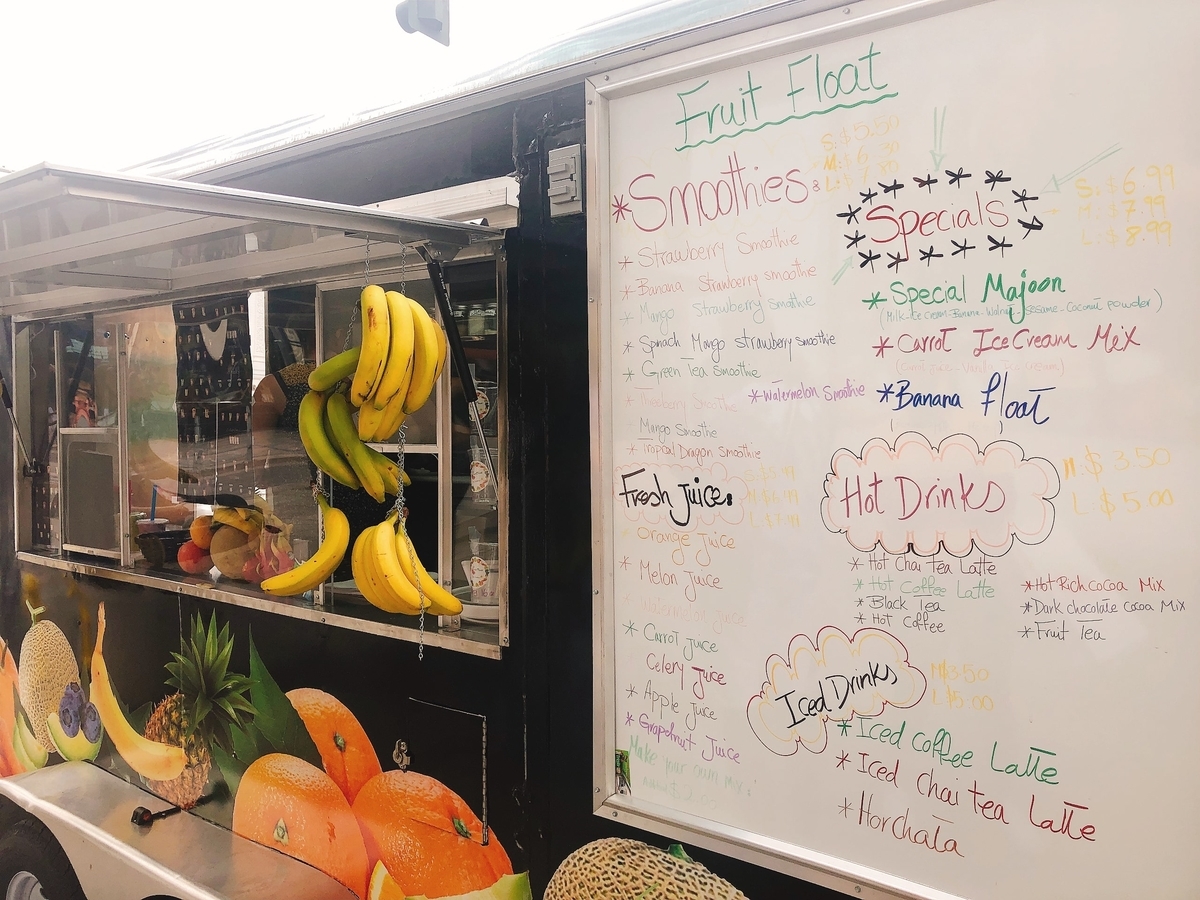 Fruit Float
*Smoothies:
S: $5.50
* Strawberry Smoothie
* Banana Strawberry smoothie
Mango Strawberry Smothie
* Spinach Mango strawberry smoothie
* Green Tea Smoothie
*Watermelon Smoothie
Mango Smothe
* Tropical Dragon Smoothie
Fresh Juice.
Orange Juice
* Melon Juice
Watermelon Juice
* Carrot Juice
Celery Juice
* Apple Juice
* Grapefruit Juice
Make your own mix:
Specials
S: $6.99
M: $7.99
L: $8.99
*Special Majoon
(Milk-Ice Cream-Banana-Walnut-Sesame-Coconut powder)
*Carrot IceCream Mix
*Banana float
Hot Drinks
M: $3.50
L $5.00
*Hot Chai Tea Latte
*Hot Coffee Latte
*Black Tea
*Hot Coffee
*Hot Rich cocoa Mix
*Dark chocolate Cocoa Mix
*Fruit Tea
Iced Drinks
M/3.50
L/5.00
*Iced Coffee Latte
*Iced chai tea Latte
*Horchata